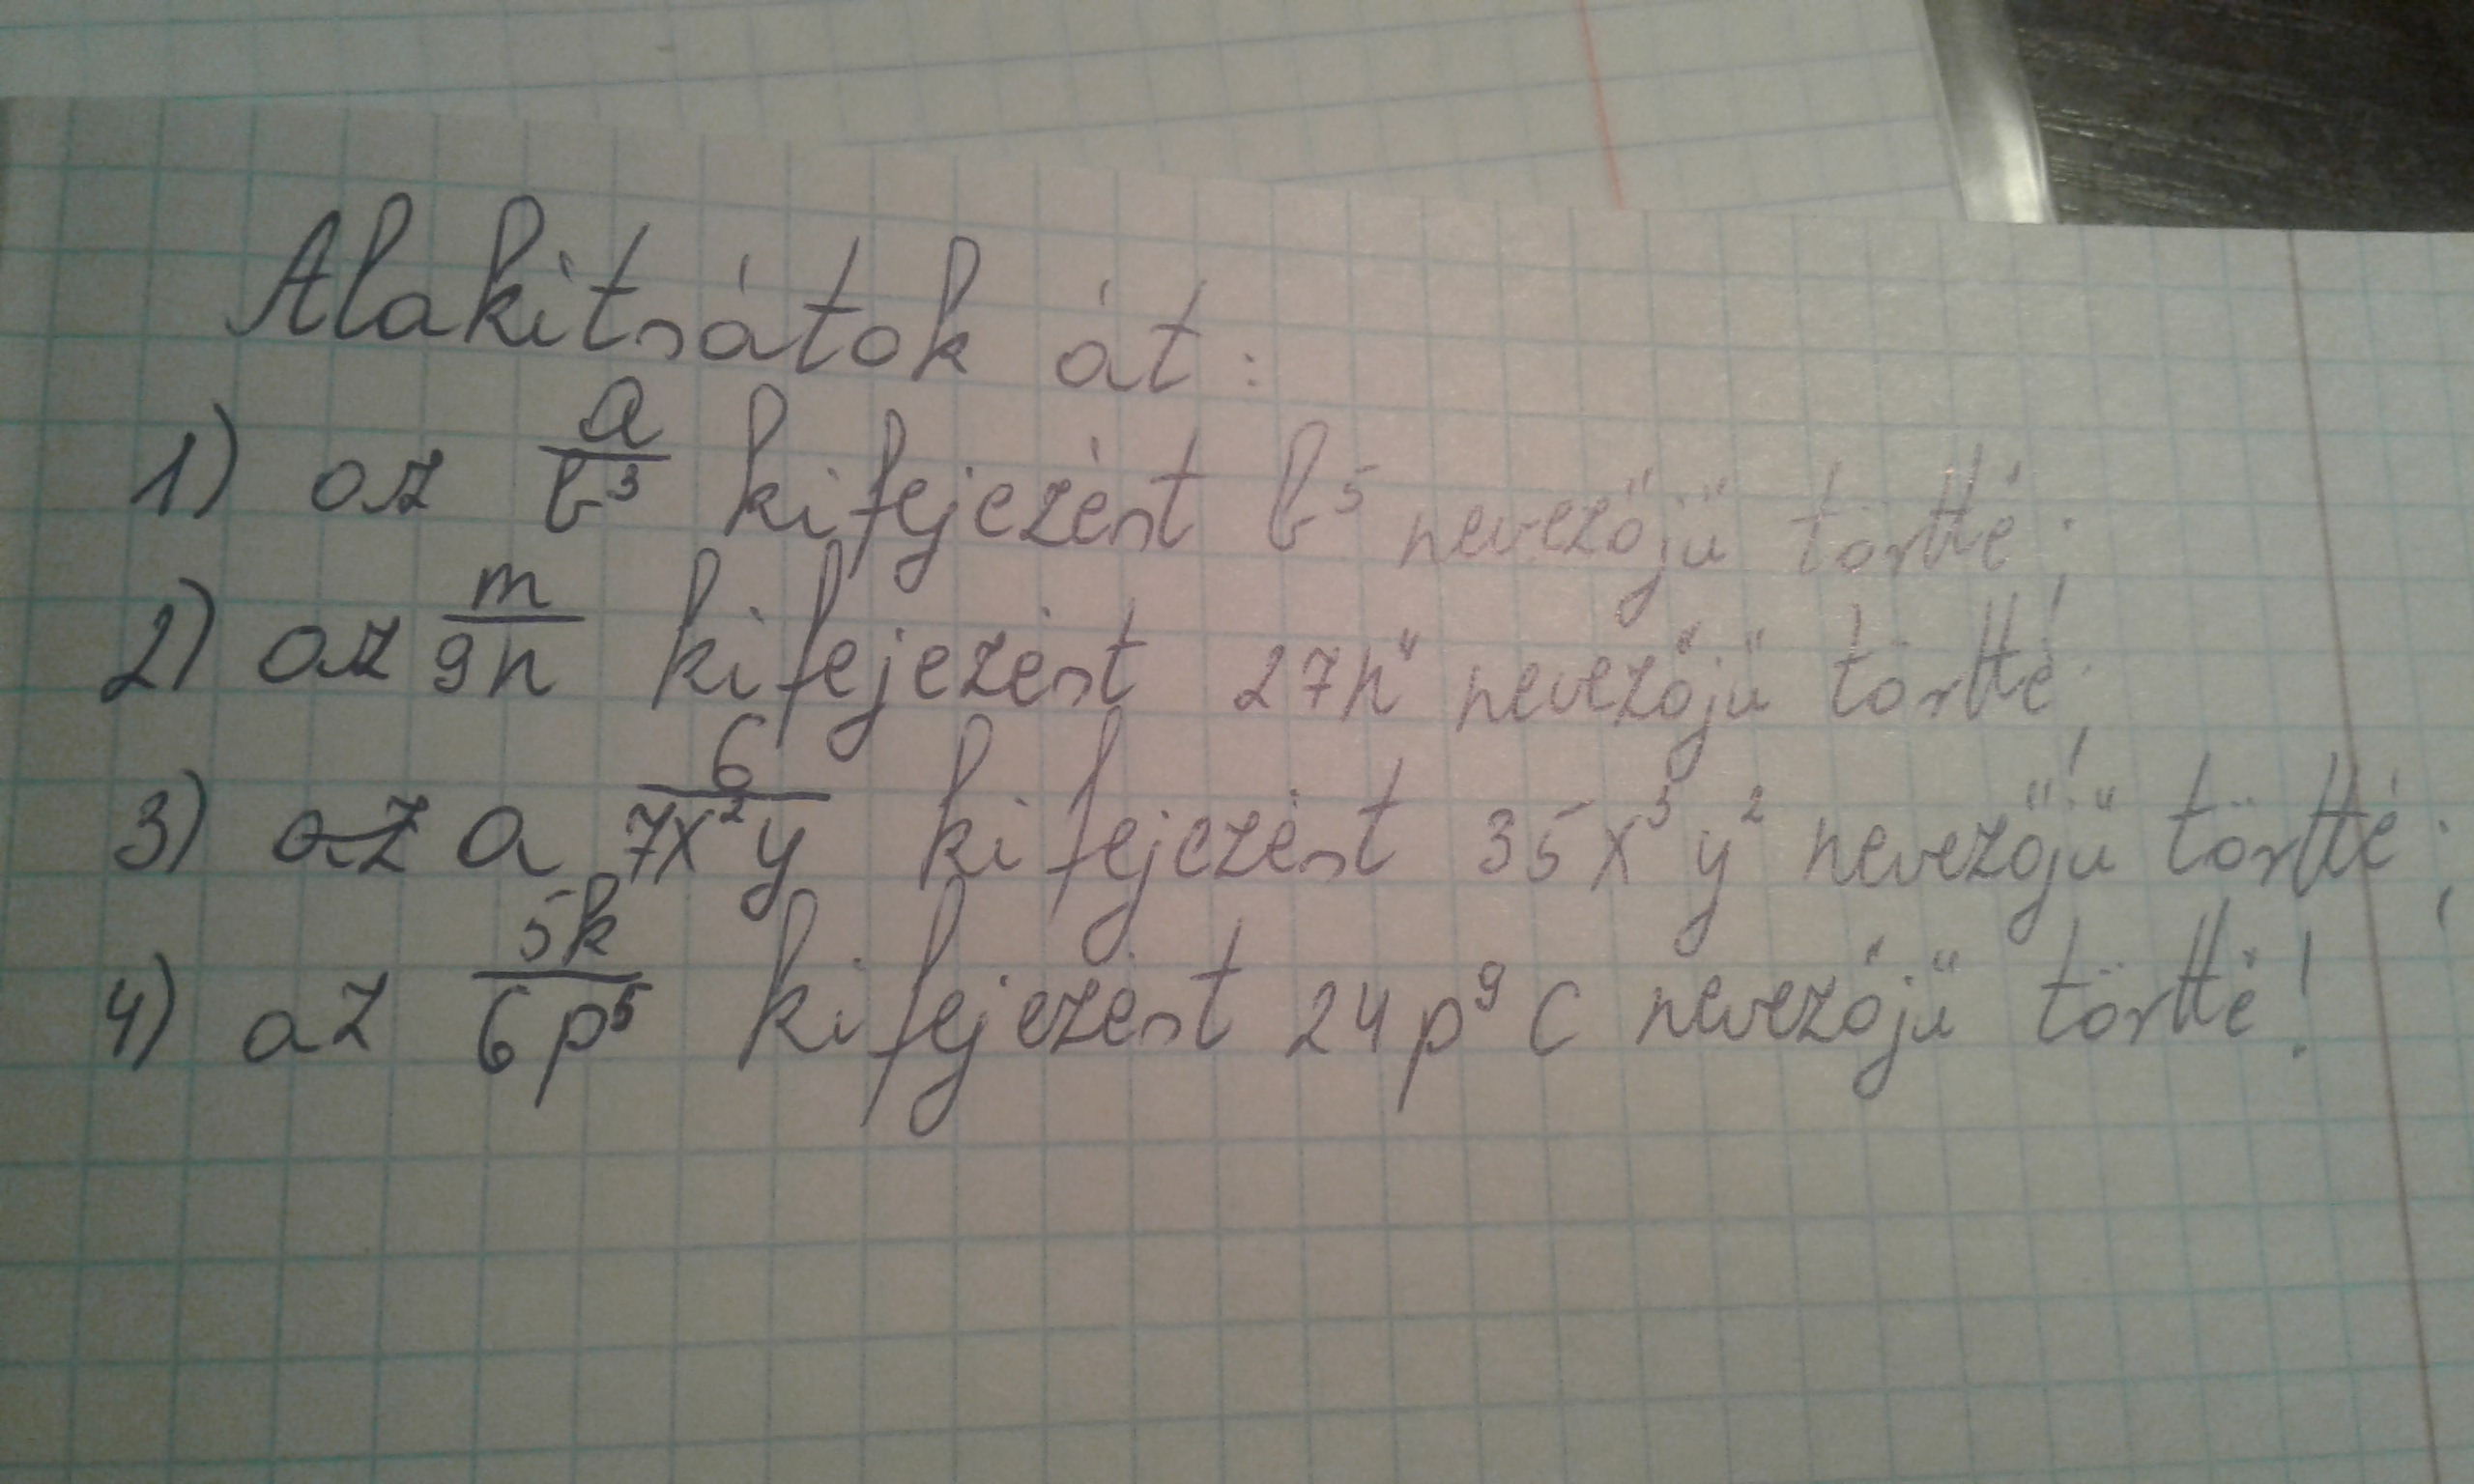 Alakitsátok át:
1) az a/b³ kifejezést b⁵ nevezőjű törtté;
2) az m/9n kifejezést 27n⁴ nevezőjű törtté;
3) az a 6/7x²y kifejezést 35x³y² nevezőjű törtté;
4) az 5k/6p⁵ kifejezést 24p⁹c nevezőjű törtté!